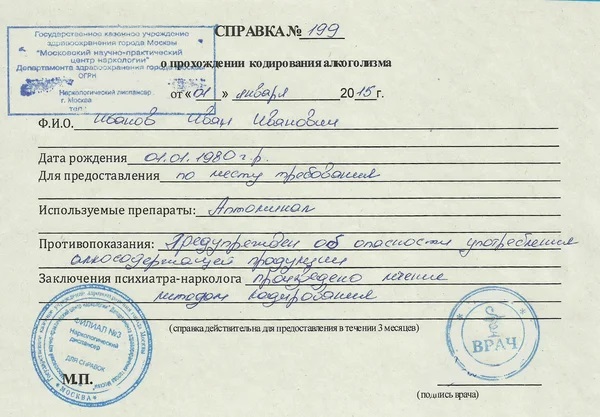 Государственное казенное учреждение
здравоохранения города Москвы
"Московский научно-практический
центр наркологии"
Департамента здравоохранения города Москвы
ОГРН
Наркологический диспансер
г. Москва
тел.:
СПРАВКА № 199
о прохождении кодирования алкоголизма
от « 01 » января 2015 г.
Ф.И.О. Иванов Иван Иванович
Дата рождения 01.01.1980 г.р.
Для предоставления по месту требования
Используемые препараты: Аптоминал
Противопоказания: Предупрежден об опасности употребления
алкосодержащей продукции
Заключения психиатра-нарколога произведено лечение
методом кодирования
(справка действительна для предоставления в течении 3 месяцев)
ФИЛИАЛ №3
Наркологический
диспансер
ДЛЯ СПРАВОК
* МОСКВА *
М.П.
ВРАЧ
(подпись врача)